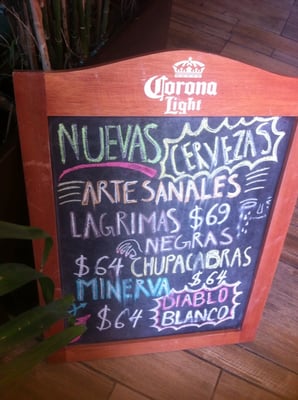 Corona
Light
NUEVAS CERVEZAS
ARTESANALES
LAGRIMAS $69
NEGRAS
$64 CHUPACABRAS
MINERVA $64
$64 DIABLO
BLANCO